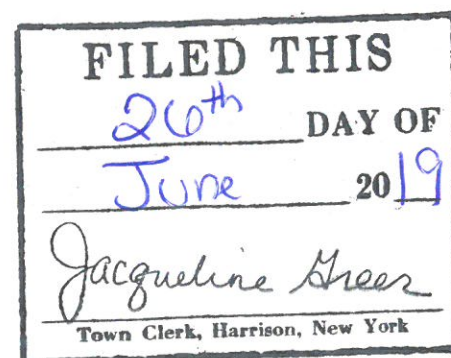 FILED THIS
26th DAY OF
June 2019
Jacqueline Greer
Town Clerk, Harrison, New York